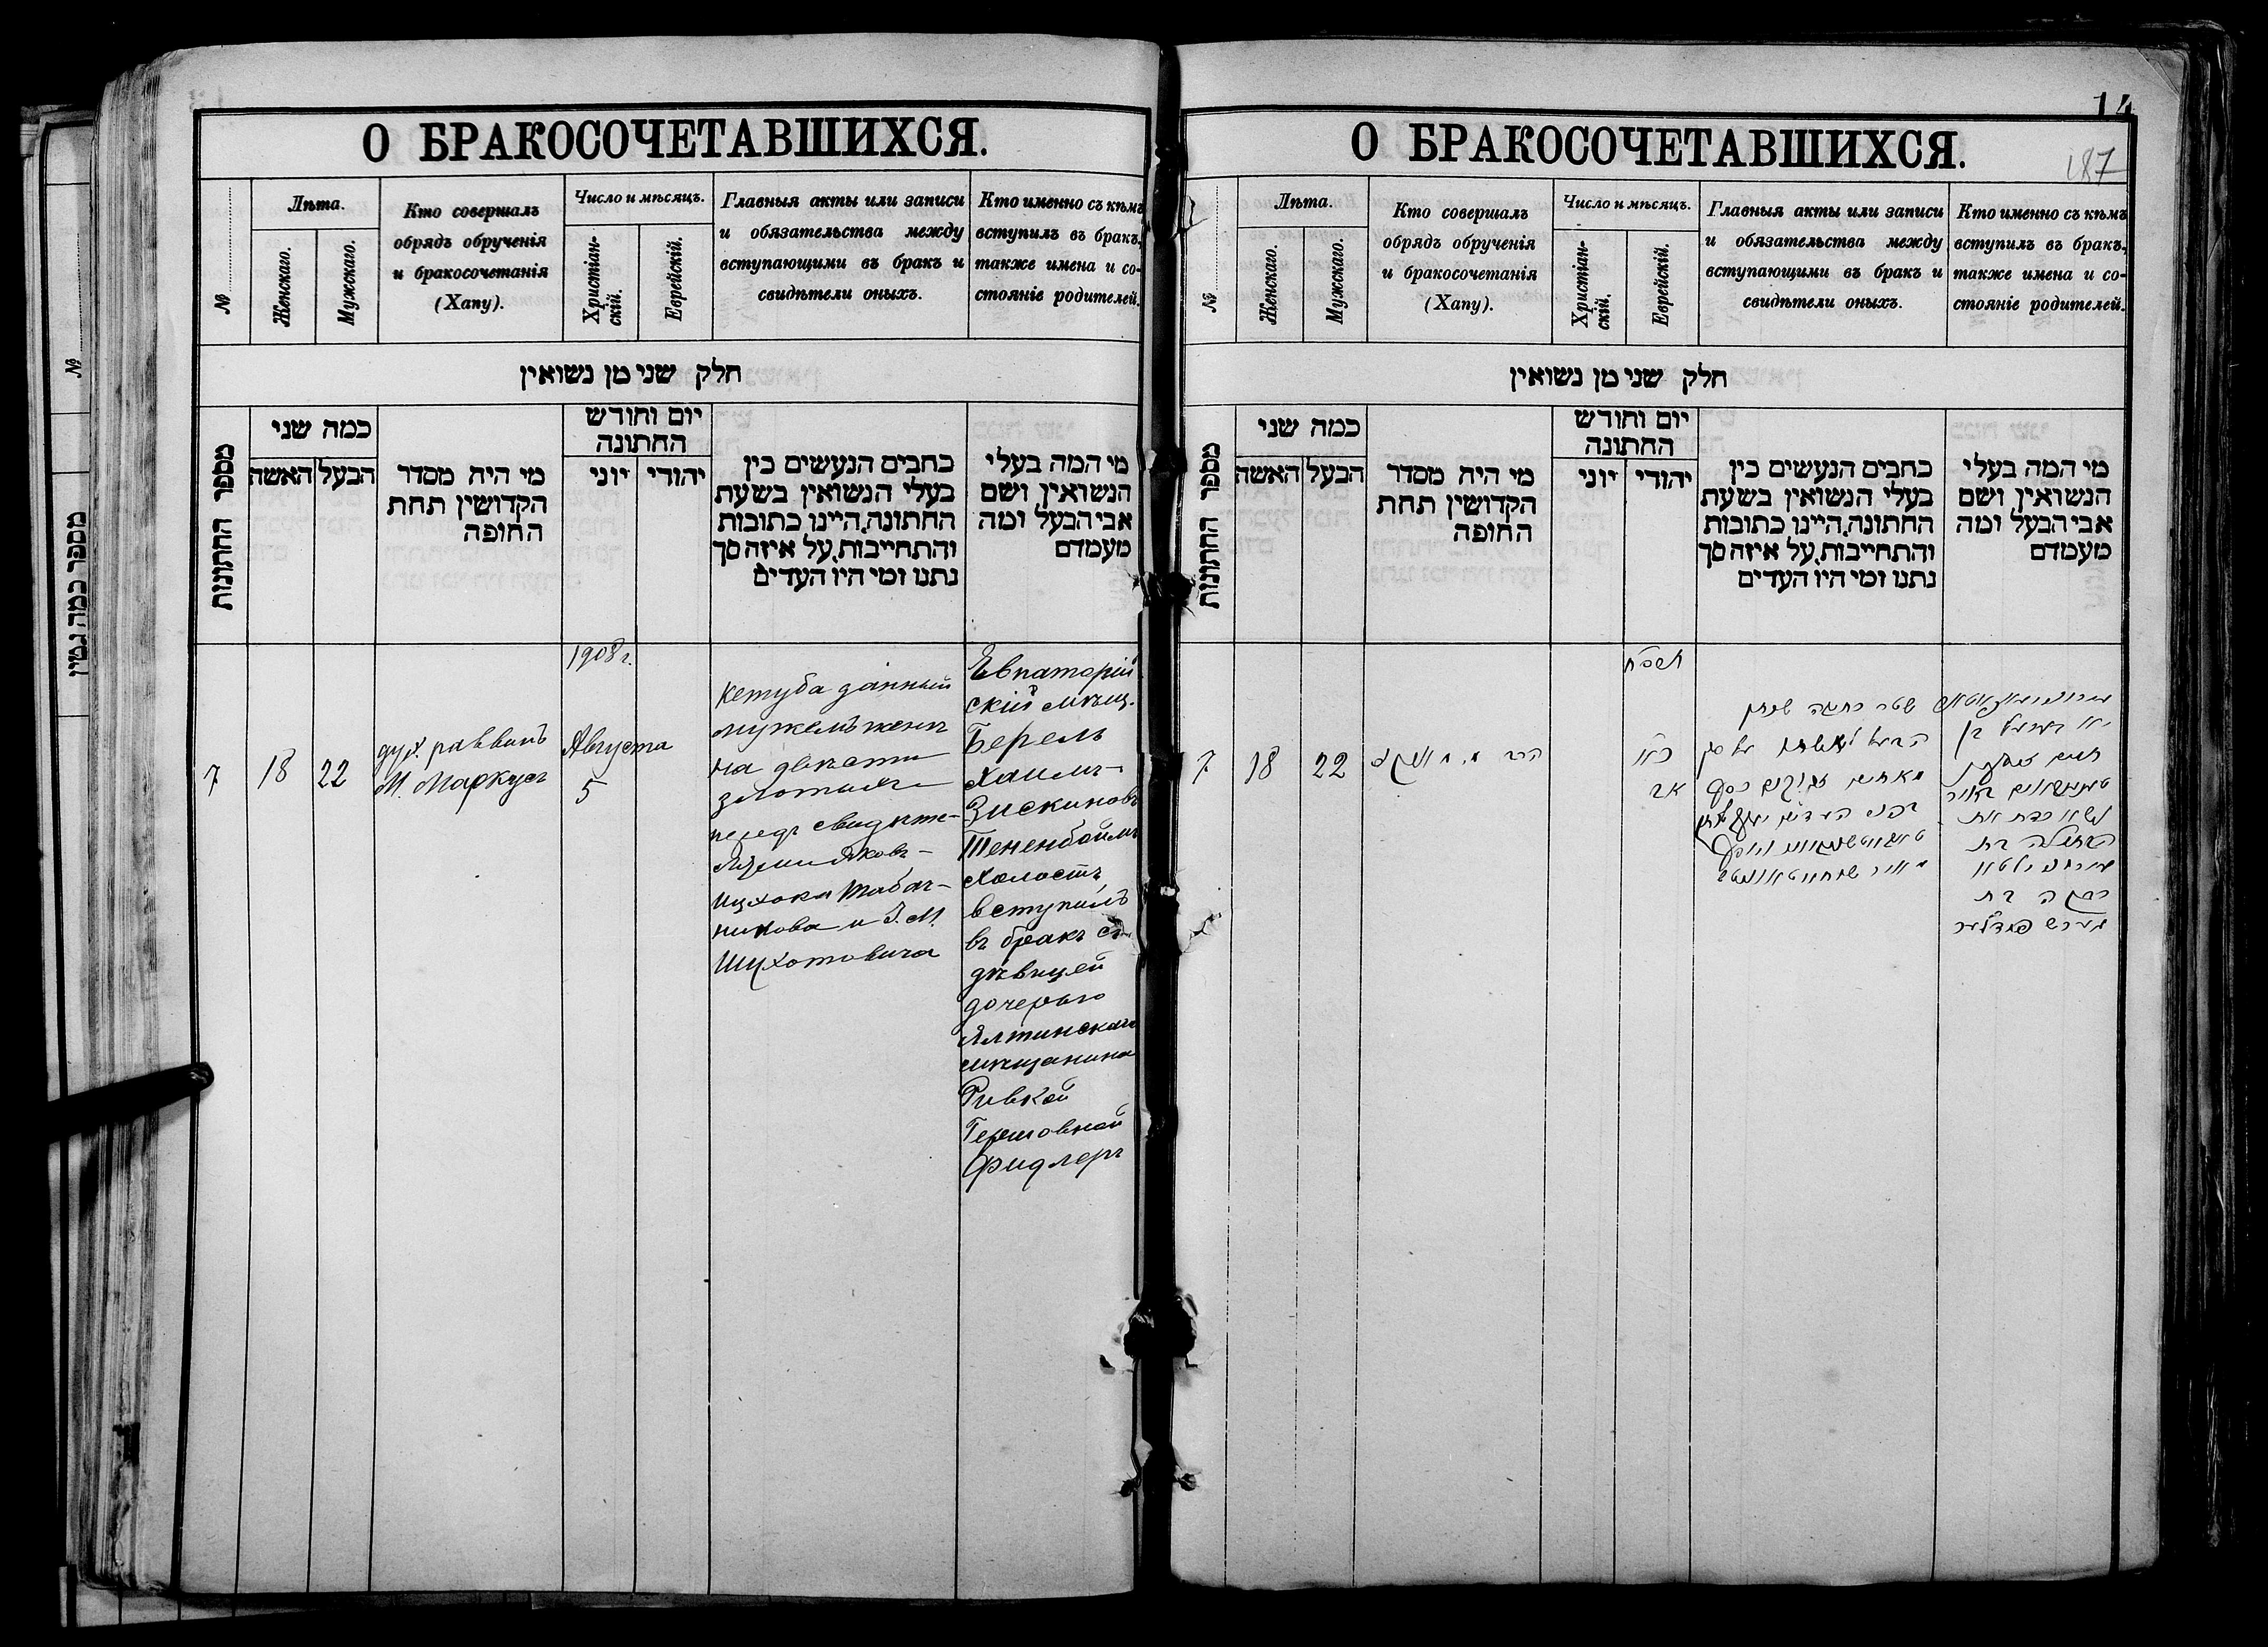 14
О БРАКОСОЧЕТАВШИХСЯ.
№
Лѣта.
Женскаго.
Мужскаго.
Кто совершалъ
обрядъ обрученія
и бракосочетанія
(Хапу).
Число и мѣсяцъ.
Христіан-
скій.
Еврейскій.
Главныя акты или записи
и обязательства между
вступающими въ бракъ и
свидѣтели оныхъ.
Кто именно съ кѣмъ
вступилъ въ бракъ,
также имена и со-
стояніе родителей.
חלק שני מן נשואין
מספר החתונות
כמה שני
האשה
הבעל
מי היה מסדר
הקדושין תחת
החופה
יום וחודש
החתונה
יוני
יהודי
כתבים הנעשים בין
בעלי הנשואין בשעת
החתונה, היינו כתובות
והתחייבות, על איזה סך
נתנו ומי היו העדים
מי המה בעלי
הנשואין ושם
אבי הבעל ומה
מעמדם
7
18
22
дух. раввинъ
М. Маркусъ
1908 г.
Августа
5
Кетуба данный
мужемъ женѣ
на двѣсти
злотыхъ
передъ свидѣте-
лями Яковъ-
Ицхока Табач-
никова и І. М.
Шухотовича
Евпаторій
скій мѣщ.
Берель
Хаимъ-
Зискиновъ
Тененбоймъ
холостъ
вступилъ
въ бракъ съ
дѣвицей
дочерью
Ялтинскаго
мѣщанина
Ривкой
Гершовной
Фидлеръ
О БРАКОСОЧЕТАВШИХСЯ.
187
№
Лѣта.
Женскаго.
Мужскаго.
Кто совершалъ
обрядъ обрученія
и бракосочетанія
(Хапу).
Число и мѣсяцъ.
Христіан-
скій.
Еврейскій.
Главныя акты или записи
и обязательства между
вступающими въ бракъ и
свидѣтели оныхъ.
Кто именно съ кѣмъ
вступилъ въ бракъ,
также имена и со-
стояніе родителей.
חלק שני מן נשואין
מספר החתונות
כמה שני
האשה
הבעל
מי היה מסדר
הקדושין תחת
החופה
יום וחודש
החתונה
יוני
יהודי
כתבים הנעשים בין
בעלי הנשואין בשעת
החתונה, היינו כתובות
והתחייבות, על איזה סך
נתנו ומי היו העדים
מי המה בעלי
הנשואין ושם
אבי הבעל ומה
מעמדם
7
18
22
הרב מ. מארקוס
תרס״ח
אב
שטר כתובה שנתן
הבעל לאשתו על סך
מאתים זקוקים כסף
בפני העדים
בן
חיים
נשא כדת את
הבתולה בת
רבקה בת
הירש פידלער